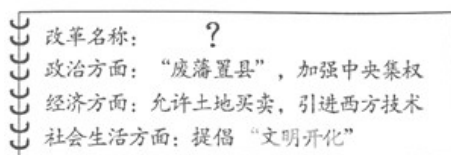 改革名称： ？
政治方面：“废藩置县”，加强中央集权
经济方面：允许土地买卖，引进西方技术
社会生活方面：提倡“文明开化”